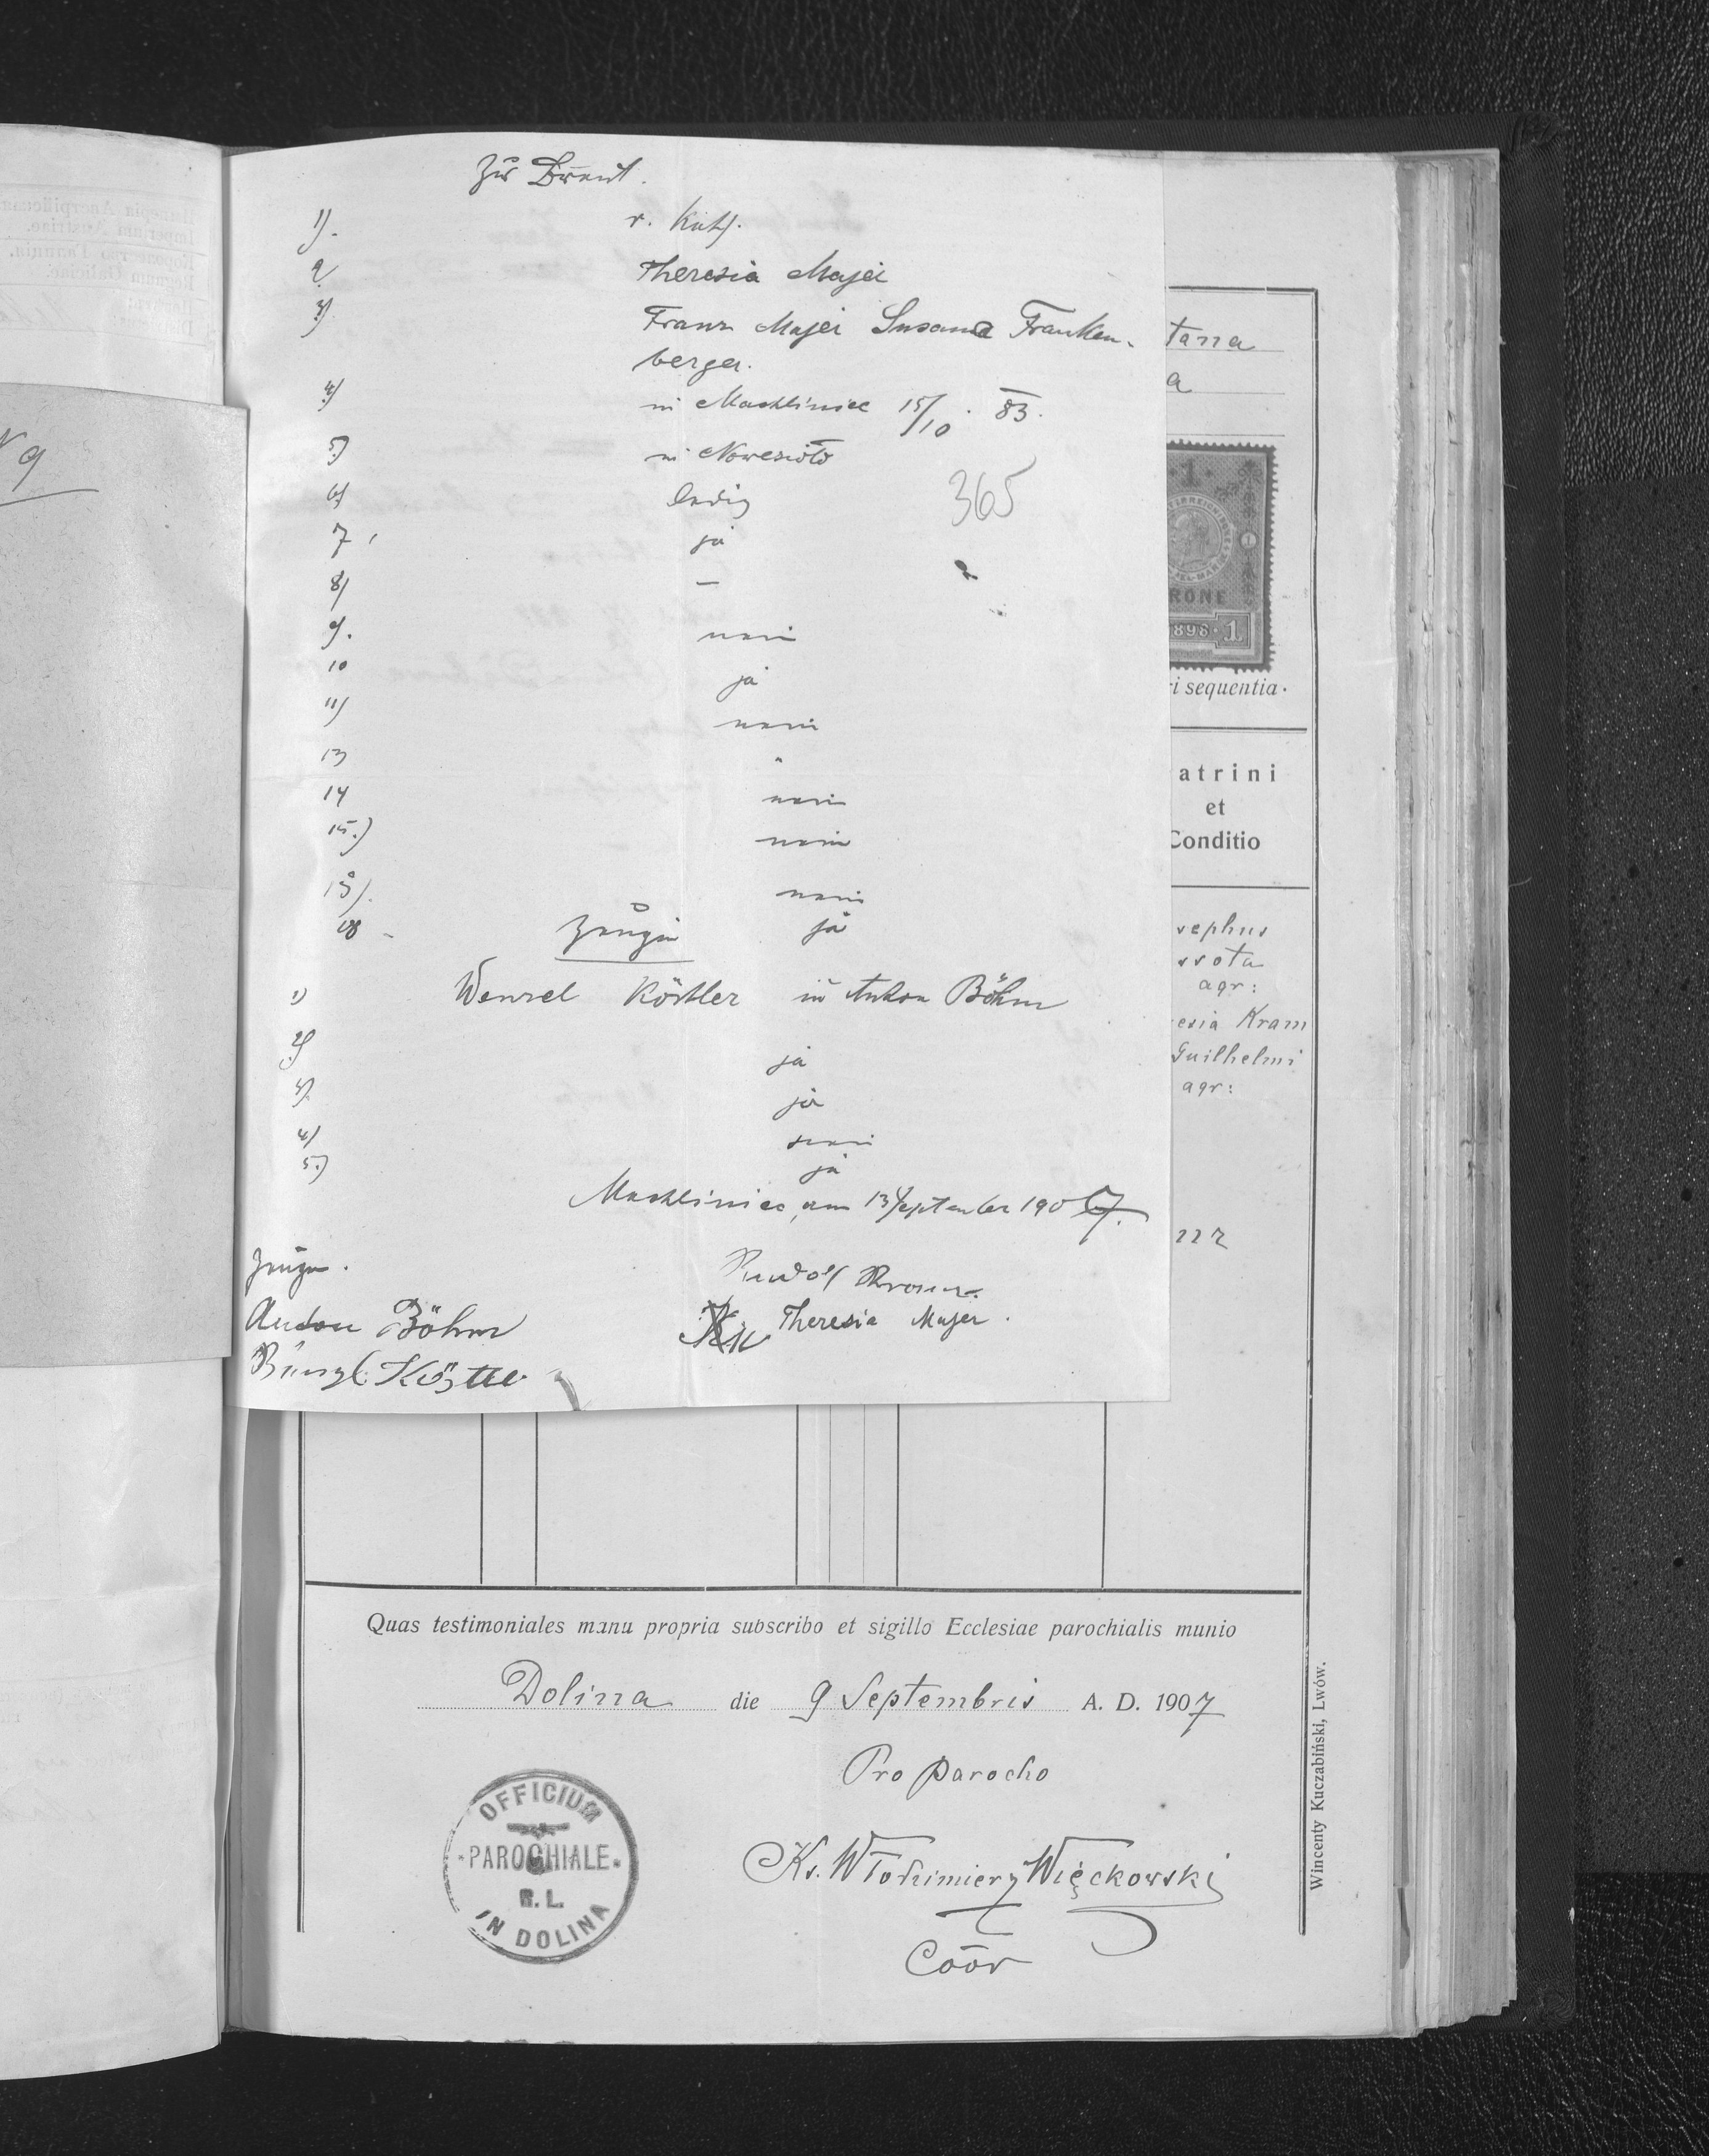 zur Braut.
1). r. kath.
2 Theresia Majer
3) Franz Majer Susanna Franken-
berger.
4) in Machliniec 15/10. 83.
5) in Nowesioło
6) ledig
365
7, ja
8) —
9. nein
10 ja
11) nein
13 "
14 nein
15.) nein
nein
18 - ja
Zeugen
1) Wenzel Köstler u Anton Böhm
2) ja
3) ja
4) nein
5.) ja
Machliniec, am 13 September 1907.
Zeugen.
Rudolf
Anton Böhm
Theresia Majer.
Köstle
N 9
tanna
a
1
KRONE
1898 · 1
ri sequentia.
atrini
et
Conditio
sephus
ssota
agr:
esia Kram
Guilhelmi
agr:
Quas testimoniales manu propria subscribo et sigillo Ecclesiae parochialis munio
Dolina die 9 Septembris A. D. 1907
Pro parocho
Ks. Włodzimierz Więckowski
Coōr
OFFICIUM
PAROCHIALE
R. L.
IN DOLINA
Wincenty Kuczabiński, Lwów.